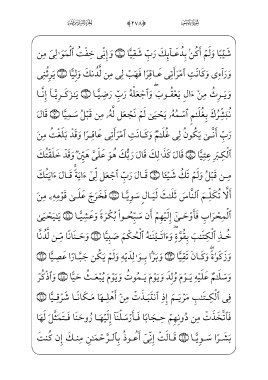 شَيْبًا وَلَمْ أَكُنۢ بِدُعَآئِكَ رَبِّ شَقِيًّا ۝ وَإِنِّى خِفْتُ ٱلْمَوَٰلِىَ مِن
وَرَآءِى وَكَانَتِ ٱمْرَأَتِى عَاقِرًا فَهَبْ لِى مِن لَّدُنكَ وَلِيًّا ۝ يَرِثُنِى
وَيَرِثُ مِنْ ءَالِ يَعْقُوبَ وَٱجْعَلْهُ رَبِّ رَضِيًّا ۝ يَٰزَكَرِيَّآ إِنَّا
نُبَشِّرُكَ بِغُلَٰمٍ ٱسْمُهُۥ يَحْيَىٰ لَمْ نَجْعَل لَّهُۥ مِن قَبْلُ سَمِيًّا ۝ قَالَ
رَبِّ أَنَّىٰ يَكُونُ لِى غُلَٰمٌ وَكَانَتِ ٱمْرَأَتِى عَاقِرًا وَقَدْ بَلَغْتُ مِنَ
ٱلْكِبَرِ عِتِيًّا ۝ قَالَ كَذَٰلِكَ قَالَ رَبُّكَ هُوَ عَلَىَّ هَيِّنٌ وَقَدْ خَلَقْتُكَ
مِن قَبْلُ وَلَمْ تَكُ شَيْـًٔا ۝ قَالَ رَبِّ ٱجْعَل لِّىٓ ءَايَةً قَالَ ءَايَتُكَ
أَلَّا تُكَلِّمَ ٱلنَّاسَ ثَلَٰثَ لَيَالٍ سَوِيًّا ۝ فَخَرَجَ عَلَىٰ قَوْمِهِۦ مِنَ
ٱلْمِحْرَابِ فَأَوْحَىٰٓ إِلَيْهِمْ أَن سَبِّحُوا۟ بُكْرَةً وَعَشِيًّا ۝ يَٰيَحْيَىٰ
خُذِ ٱلْكِتَٰبَ بِقُوَّةٍ وَءَاتَيْنَٰهُ ٱلْحُكْمَ صَبِيًّا ۝ وَحَنَانًا مِّن لَّدُنَّا
وَزَكَوٰةً وَكَانَ تَقِيًّا ۝ وَبَرًّۢا بِوَٰلِدَيْهِ وَلَمْ يَكُن جَبَّارًا عَصِيًّا ۝
وَسَلَٰمٌ عَلَيْهِ يَوْمَ وُلِدَ وَيَوْمَ يَمُوتُ وَيَوْمَ يُبْعَثُ حَيًّا ۝ وَٱذْكُرْ
فِى ٱلْكِتَٰبِ مَرْيَمَ إِذِ ٱنتَبَذَتْ مِنْ أَهْلِهَا مَكَانًا شَرْقِيًّا ۝
فَٱتَّخَذَتْ مِن دُونِهِمْ حِجَابًا فَأَرْسَلْنَآ إِلَيْهَا رُوحَنَا فَتَمَثَّلَ لَهَا
بَشَرًا سَوِيًّا ۝ قَالَتْ إِنِّىٓ أَعُوذُ بِٱلرَّحْمَٰنِ مِنكَ إِن كُنتَ